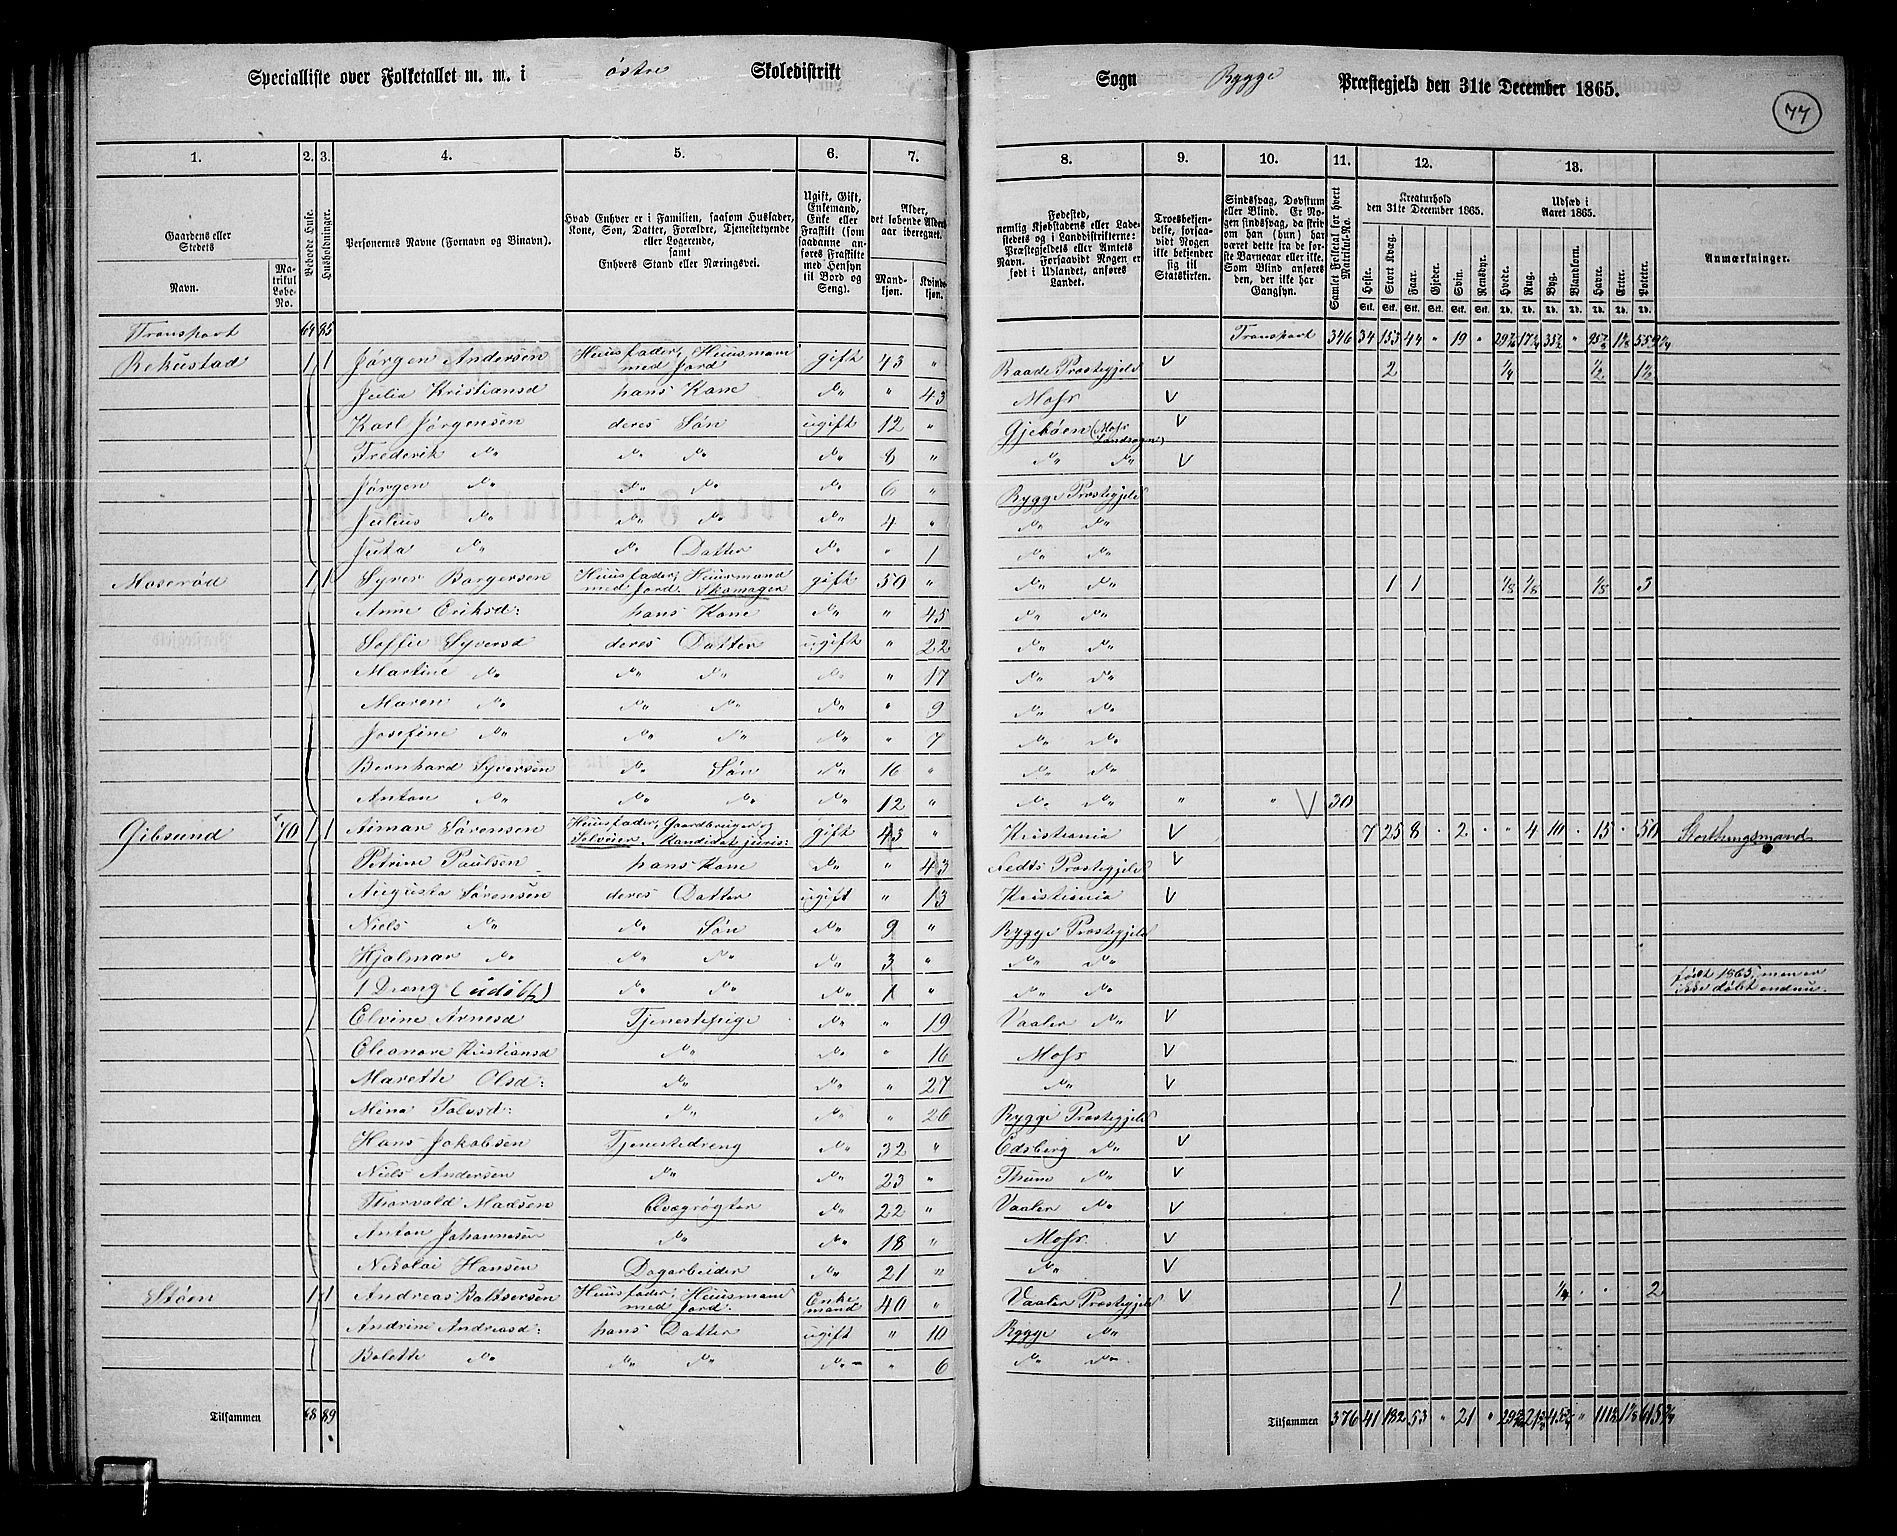 Specialliste over Folketallet m. m. i østre Skoledistrikt Sogn Rygge Præstegjeld den 31te December 1865.
77
1. 2. 3. 4. 5. 6. 7. 8. 9. 10. 11. 12. 13.
Gaardens eller Stedets
Navn. Matrikul Løbe-No.
Beboede Huse.
Husholdninger.
Personernes Navne (Fornavn og Binavn).
Hvad Enhver er i Familien, saasom Husfader, Kone, Søn, Datter, Forældre, Tjenestetyende eller Logerende, samt Enhvers Stand eller Næringsvei.
Ugift, Gift, Enkemand, Enke eller Fraskilt (som saadanne anføres Fraskilte med Hensyn til Bord og Seng).
Alder, det løbende Alders aar iberegnet.
Mandkjøn. Kvindekjøn.
Fødested, nemlig Kjøbstadens eller Ladestedets og i Landdistrikterne: Præstegjeldets eller Amtets Navn. Forsaavidt Nogen er født i Udlandet, anføres Landet.
Troesbekjendelse, forsaavidt Nogen ikke bekjender sig til Statskirken.
Sindssvag, Døvstum eller Blind. Er Nogen sindssvag, da skrives om han (hun) har været dette fra de første Barneaar eller ikke. Som Blind anføres den, der ikke har Gangsyn.
Samlet Folketal for hvert Matrikul-No.
Kreaturhold den 31te December 1865.
Heste. Stort Kvæg. Faar. Gjeder. Svin. Rensdyr.
Udsæd i Aaret 1865.
Hvede. Rug. Byg. Blandkorn. Havre. Erter. Poteter.
Anmærkninger.
Transport 64 85 Transport 346 34 153 44 " 19 "
Rekustad 1 1 Jørgen Andersen Huusfader, Huusmand med Jord gift 43 " Raade Præstegjeld V 2 ¼ ½ 1½
Julia Kristiansd hans Kone do " 43 Moss V
Karl Jørgensen deres Søn ugift 12 " Gjeløen (Moss Landsogn) V
Frederik do do do do 8 " do do V
Jørgen do do do do 6 " Rygge Præstegjeld
Julius do do do do 4 " do do
Juta do do Datter do " 1 do do
Moserød 1 1 Syver Borgersen Huusfader, Huusmand med Jord. Skomager gift 50 " do do 1 1 ⅛ ⅛ ⅛ 3
Anne Eriksd: hans Kone do " 45 do do
Soffie Syversd deres Datter ugift " 22 do do
Martine do do do do " 17 do do
Maren do do do do " 9 do do
Josefine do do do do " 7 do do
Bernhard Syversen do Søn do 16 " do do
Anton do do do do 12 " do do " " V 30
Gibsund 70 1 1 Aimar Sørensen Huusfader, Gaardbruger og Selveier. Kandidat juris: gift 43 " Kristiania V 7 25 8 " 2 " " 4 10 " 15 " 50 Storthingsmand
Petrine Paulsen hans Kone do " 43 Præstegjeld V
Augusta Sørensen deres Datter ugift " 13 Kristiania V
Niels do do Søn do 9 " Rygge Præstegjeld
Hjalmar do do do do 3 " do do
1 Dreng (udøbt) do do do 1 " do do født 1865, men er ikke døbt endnu.
Elvine Arnesd Tjenestepige do " 19 Vaaler do V
Eleanore Kristiansd do do " 16 Moss V
Marethe Olsd: do do " 27 do V
Mina Tolvsd: do do " 26 Rygge Præstegjeld
Hans Jakobsen Tjenestedreng do 32 " Edsberg do V
Niels Andersen do do 23 " Thune do V
Thorvald Madsen Qvægrøgter do 22 " Vaaler do V
Anton Johannesen do do 18 " Moss V
Nikolai Hansen Dagarbeider do 21 " do V
Støen 1 1 Andreas Baltsersen Huusfader, Huusmand med Jord. Enkemand 40 " Vaaler Præstegjeld V 1 ¼ 2
Andrine Andreasd: hans Datter ugift " 10 Rygge do
Bolette do do do do " 6 do do
Tilsammen 68 89 Tilsammen 376 41 182 53 " 21 "